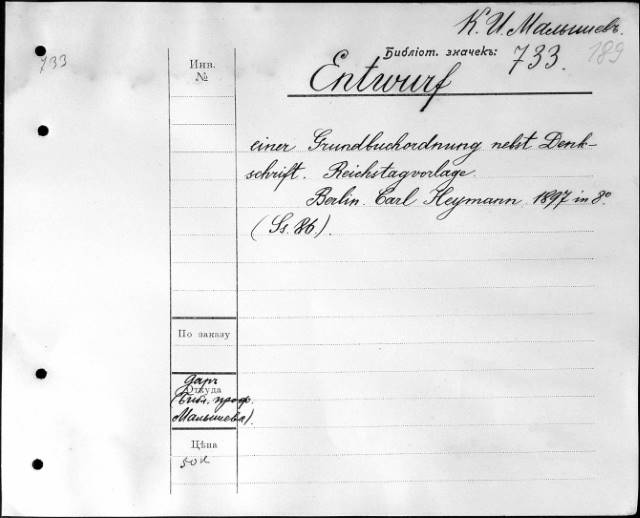 К. И. Малышевъ.
Библіот. значекъ: 733.
189
733
Инв.
№
Entwurf
einer Grundbuchordnung nebst Denk-
schrift. Reichstagvorlage.
Berlin. Carl Heymann. 1897 in 8º
(Ss. 86).
По заказу
даръ
Откуда
(Библ. проф.
Малышева).
Цѣна
50к